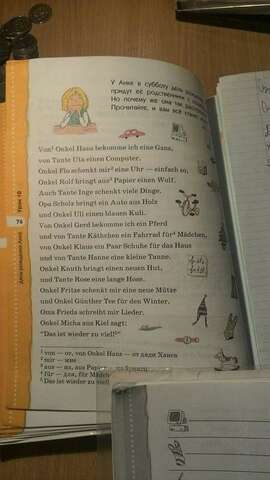 У Ани в субботу день рождения
придут её родственники с
Но почему же она так
Прочитайте, и вам всё станет
Von¹ Onkel Hans bekomme ich eine Gans,
von Tante Uta einen Computer.
Onkel Flo schenkt mir² eine Uhr — einfach so,
Onkel Rolf bringt aus³ Papier einen Wolf.
Auch Tante Inge schenkt viele Dinge.
Opa Scholz bringt ein Auto aus Holz
und Onkel Uli einen blauen Kuli.
Von Onkel Gerd bekomme ich ein Pferd
und von Tante Käthchen ein Fahrrad für⁴ Mädchen,
von Onkel Klaus ein Paar Schuhe für das Haus
und von Tante Hanne eine kleine Tanne.
Onkel Knuth bringt einen neuen Hut,
und Tante Rose eine lange Hose.
Onkel Fritze schenkt mir eine neue Mütze
und Onkel Günther Tee für den Winter.
Oma Frieda schreibt mir Lieder.
Onkel Micha aus Kiel sagt:
"Das ist wieder zu viel!⁵"
¹ von — от, von Onkel Hans — от дяди Ханса
² mir — мне
³ aus — из, aus Papier — из бумаги
⁴ für — для, für Mädchen
⁵ Das ist wieder zu viel!
74
Урок 10
День рождения Ани